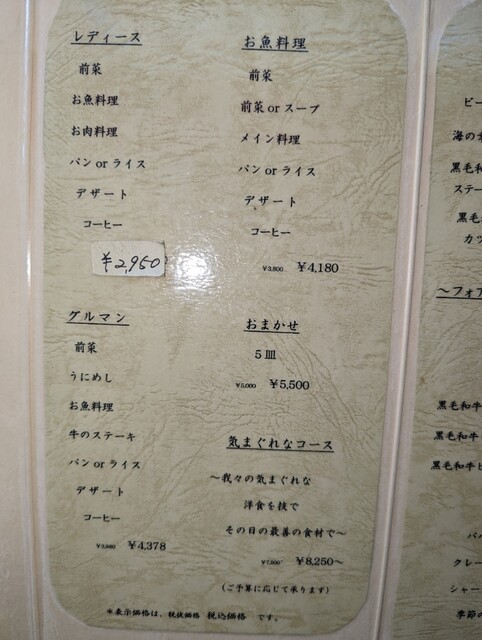 レディース
前菜
お魚料理
お肉料理
パン or ライス
デザート
コーヒー
¥2,950
お魚料理
前菜
前菜 or スープ
メイン料理
パン or ライス
デザート
コーヒー
¥3,800 ¥4,180
グルマン
前菜
うにめし
お魚料理
牛のステーキ
パン or ライス
デザート
コーヒー
¥3,980 ¥4,378
おまかせ
5皿
¥5,000 ¥5,500
気まぐれなコース
～我々の気まぐれな
洋食を挟で
その日の最善の食材で～
¥7,500 ¥8,250～
(ご予算に応じて承ります)
※表示価格は、税抜価格 税込価格 です。
ビー
海の
黒毛和
ステー
黒毛
カツ
～フォア
黒毛和牛
黒毛和牛
黒毛和牛
パ
クレー
シャー
季節の